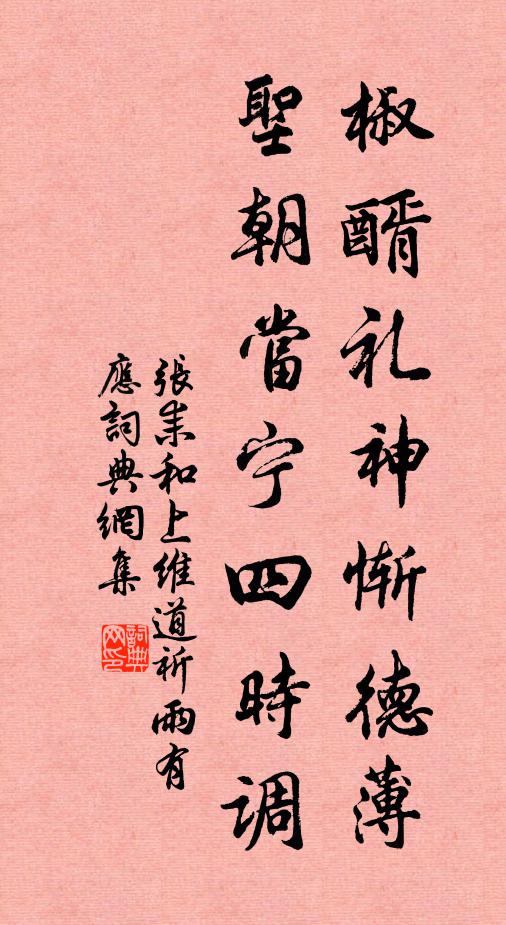 椒醑礼神惭德薄
聖朝當宁四時调
張耒和上維道祈雨有
應詞典網集
詞典
网印